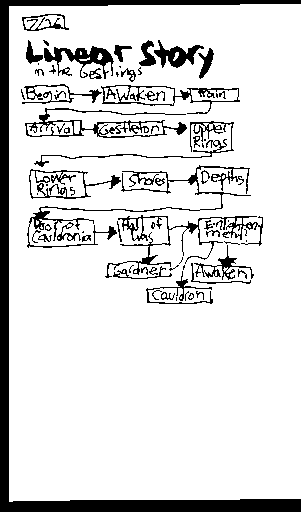 7/26
Linear Story
in the Gestlings
Begin
Awaken
Train
Arrival
Gestleton
Upper
Rings
Lower
Rings
Shores
Depths
Door of
Cauldronia
Hall of
Was
Enlighten
ment
Gardner
Awaken
Cauldron